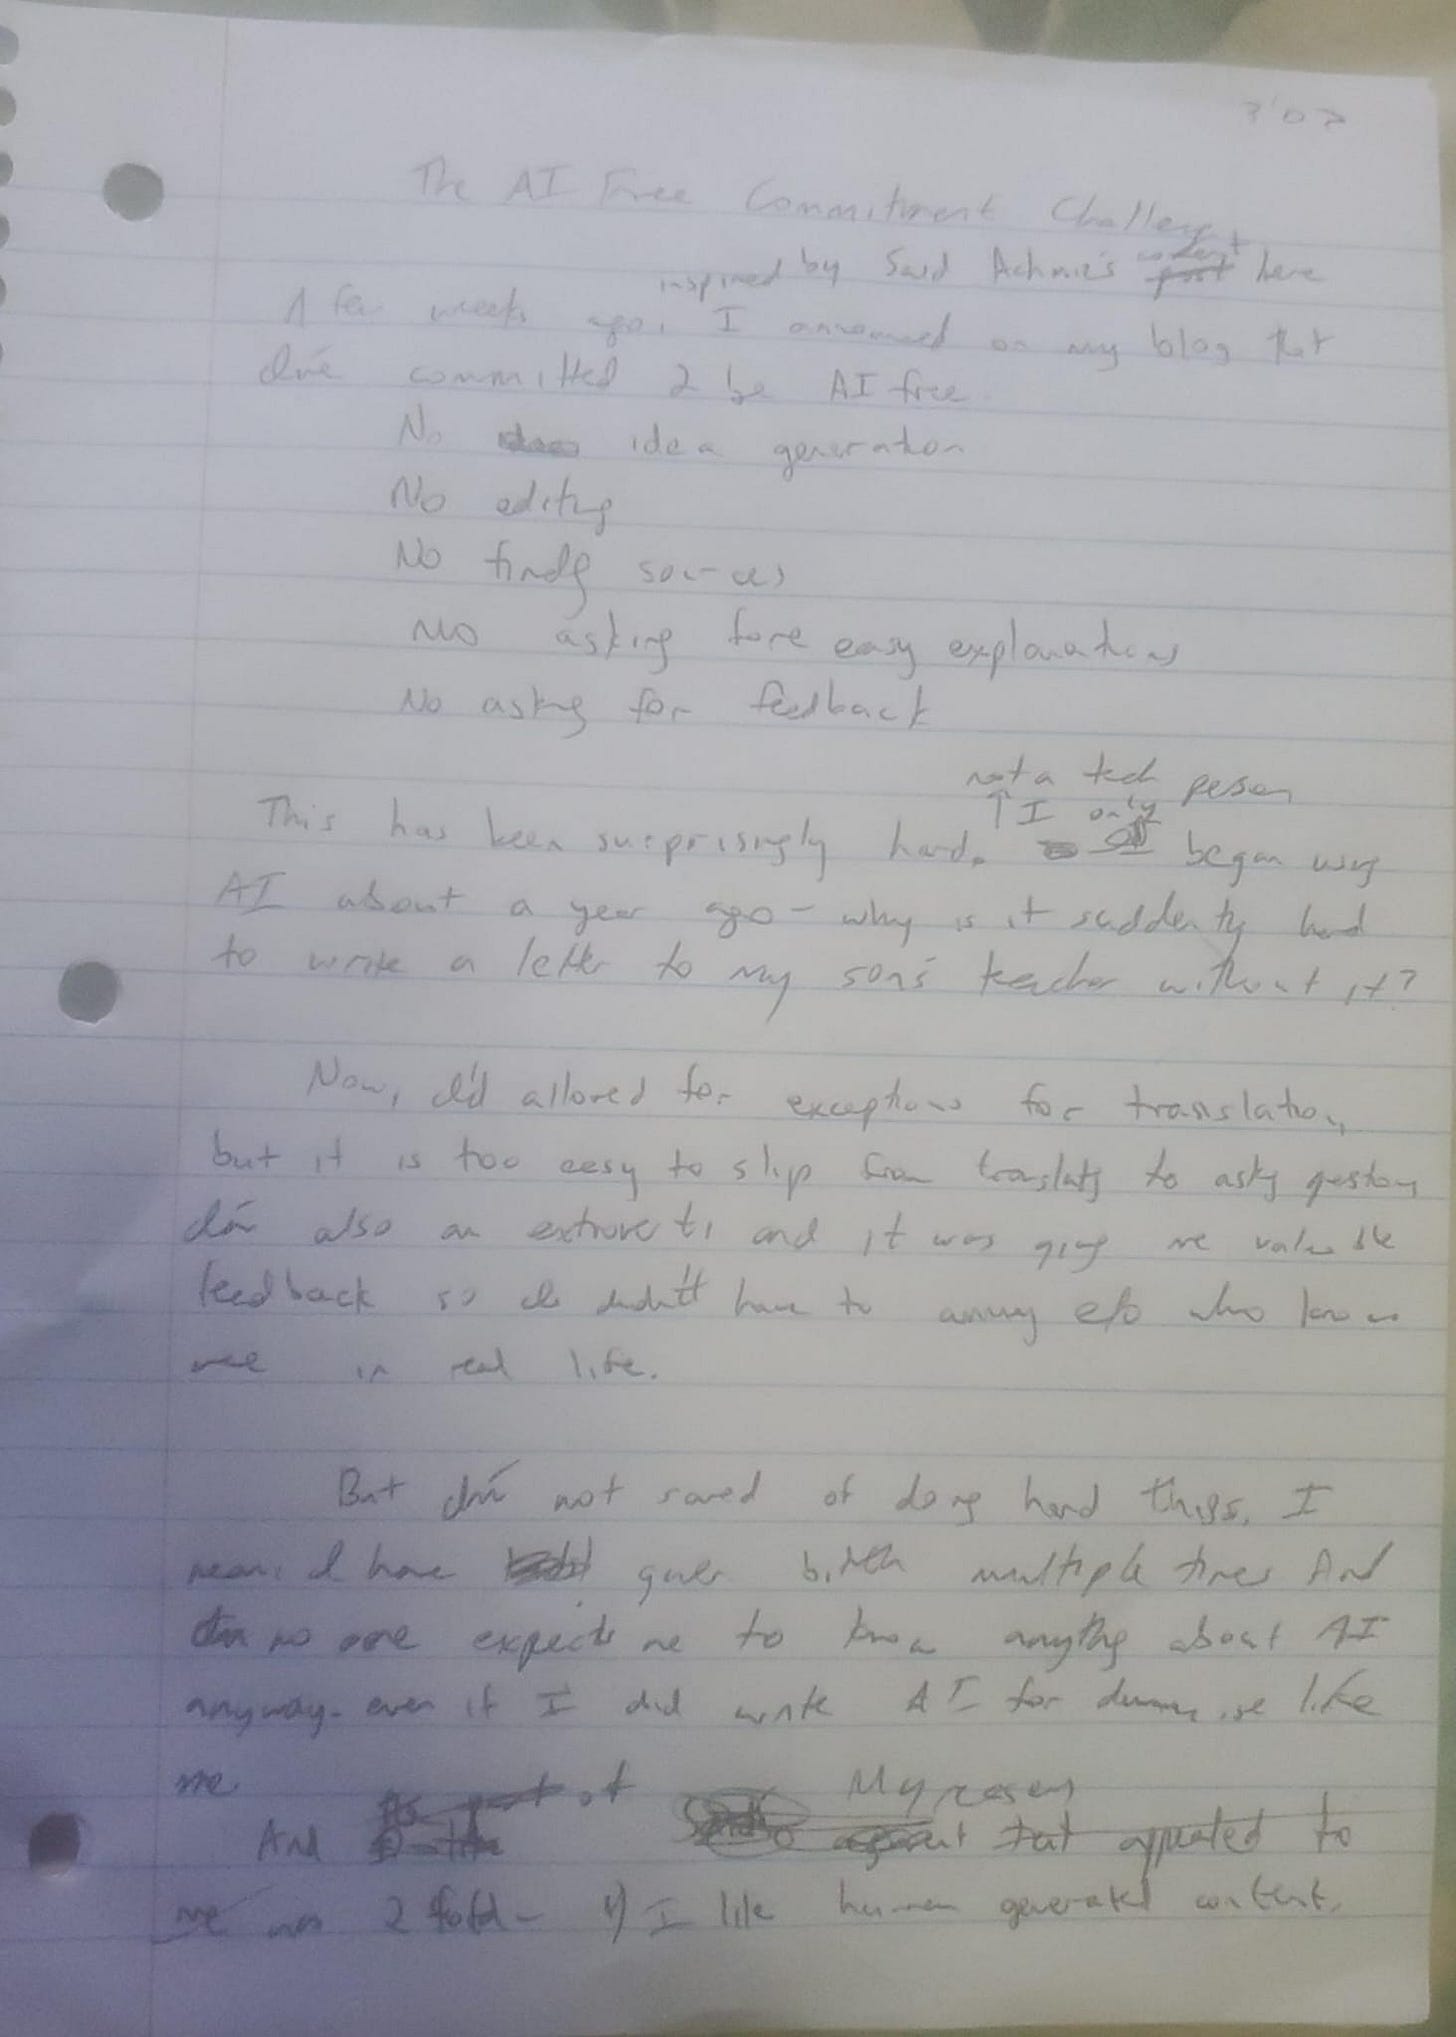 The AI Free Commitment Challenge
inspired by Said Achmiz's content here
A few weeks ago, I announced on my blog that
I've committed 2 be AI free.
No idea generation
No editing
No finding sources
No asking fore easy explanations
No asking for feedback
not a tech person
↑ I only
This has been surprisingly hard. began using
AI about a year ago - why is it suddenly hard
to write a letter to my son's teacher without it?
Now, I'd allowed for exceptions for translation,
but it is too easy to slip from translating to asking questions
I'm also an extrovert, and it was giving me valuable
feedback so I didn't have to annoy e/o who knows
me in real life.
But I'm not scared of doing hard things. I
mean, I have given birth multiple times And
no one expects me to know anything about AI
anyway- even if I did write AI for dummies like
me.
My reasons
And that appealed to
me was 2 fold - 1) I like human generated content.